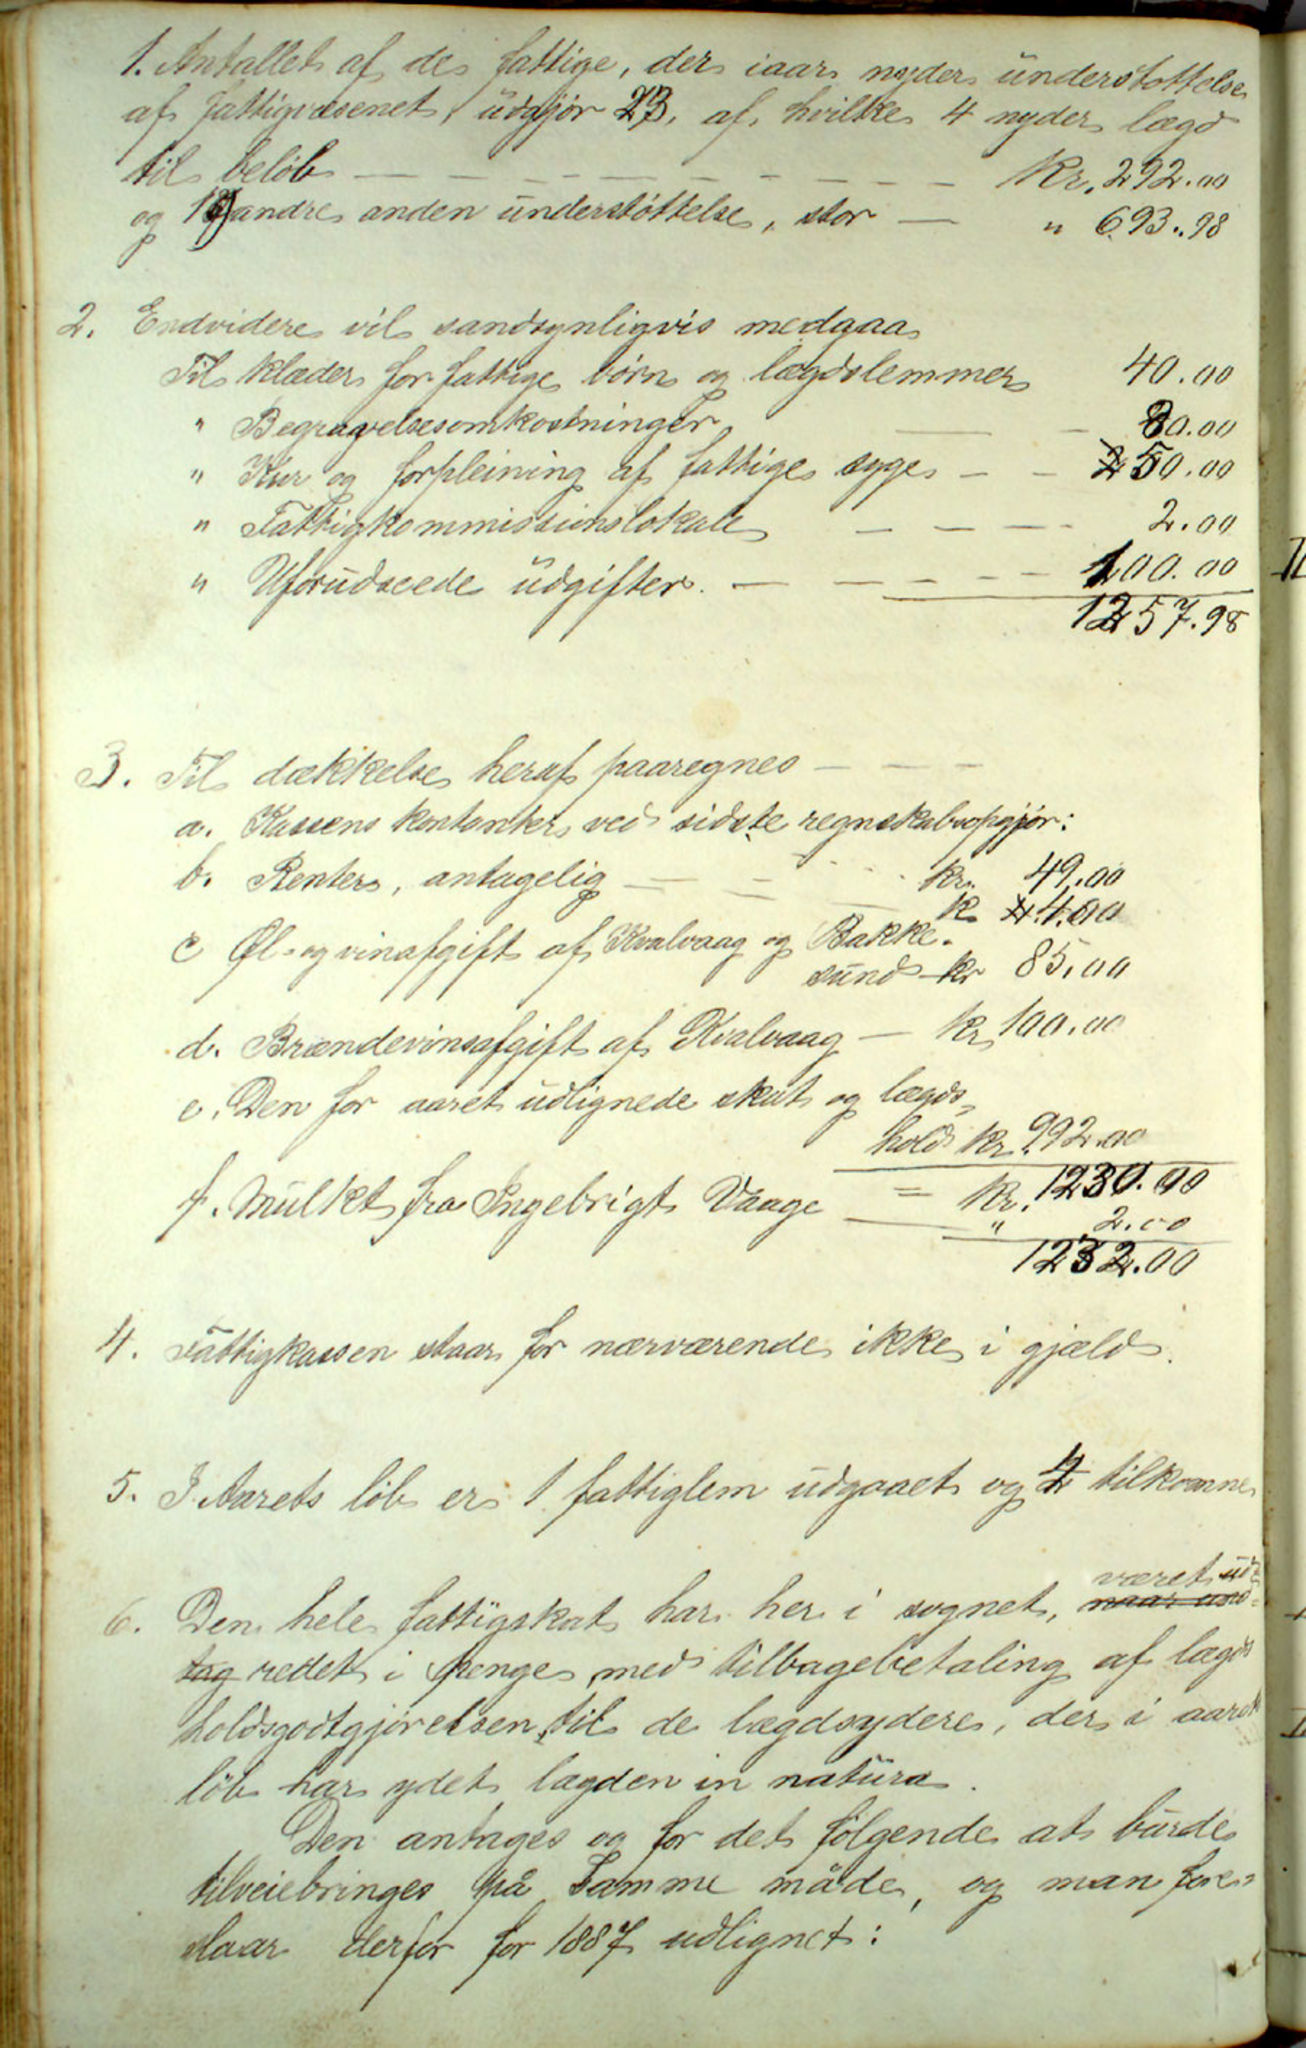 1. Antallet af de fattige, der iaar nyder understøttelse
af fattigvæsenet, udgjør 23, af hvilke 4 nyder lægd
til beløb — — — — — kr. 292.00
og 19 andre anden understøttelse, stor — " 693.98
2. Endvidere vil sandsynligvis medgaa
Til klæder for fattige børn og lægdslemmer 40.00
" Begravelsesomkostninger — — 80.00
" Kur og forpleining af fattige syge — — 50.00
" Fattigkommissionslokale — — — 2.00
" Uforudseede udgifter. — — — — 100.00
1257.98
3. Til dækkelse heraf paaregnes — — —
a. Kassens kontanter ved sidste regnskabsopgjør:
kr. 49.00
b. Renter, antagelig — — — k 4.00
c Øl- og vinafgift af Kvalvaag og Bakke-
sund kr 85.00
d. Brændevinsafgift af Kvalvaag — kr 100.00
e. Den for aaret udlignede skat og lægds-
hold kr. 992.00
= kr. 1230.00
f. Mulkt fra Ingebrigt Vaage — " 2.00
1232.00
4. Fattigkassen staar for nærværende ikke i gjæld.
5. I Aarets løb er 1 fattiglem udgaaet og tilkomne
været ud-
6. Den hele fattigskat har her i sognet, naar und-
tag redet i penge med tilbagebetaling af lægds
holdsgodtgjørelsen til de lægdsydere, der i aarets
løb har ydet lægden in natura.
Den antages og for det følgende at burde
tilveiebringes på samme måde, og man fore-
slaar derfor for 1887 udlignet:
II